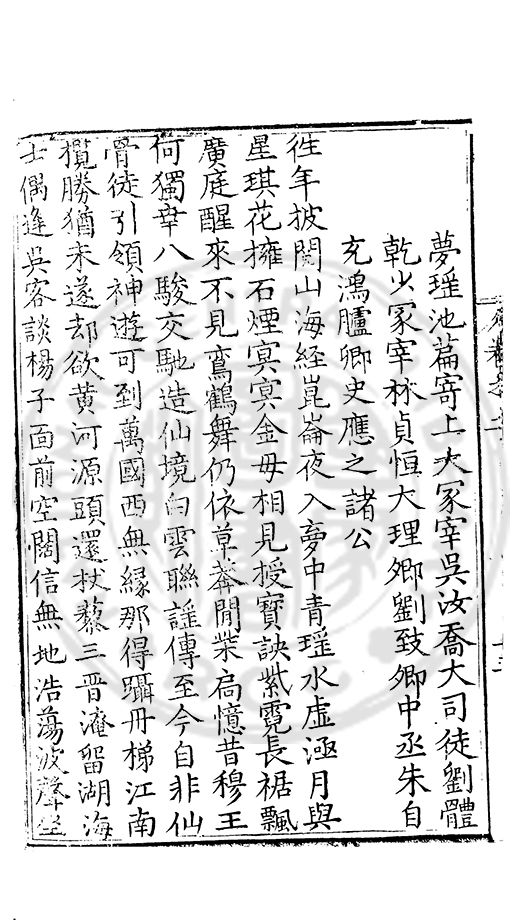 夢瑶池篇寄上大冢宰吳汝喬大司徒劉體
乾少冢宰林貞恒大理卿劉致卿中丞朱自
充鴻臚卿史應之諸公
徃年披閱山海經崑崙夜入夢中青瑶水虚涵月與
星琪花擁石煙冥冥金母相見授寶訣紫霓長裾飄
廣庭醒來不見鸞鶴舞仍依草莽閒柴扃憶昔穆王
何獨幸八駿交馳造仙境白雲聮謡傳至今自非仙
骨徒引領神遊可到萬國西無緣那得躡丹梯江南
攬勝猶未遂却欲黄河源頭還杖藜三晋淹留湖海
士偶逢吳客談楊子面前空闊信無地浩蕩波聲